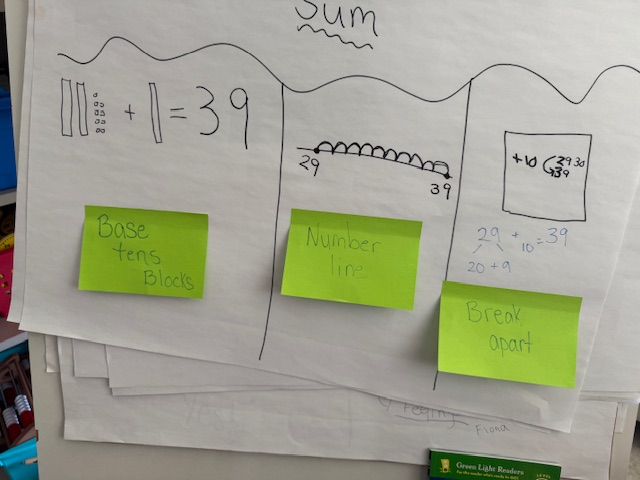 Sum
+ = 39
29
39
+10 29 30
39
29 + 10 = 39
20 + 9
Base
tens
Blocks
Number
line
Break
apart
Fiona
Green Light Readers
LEVEL